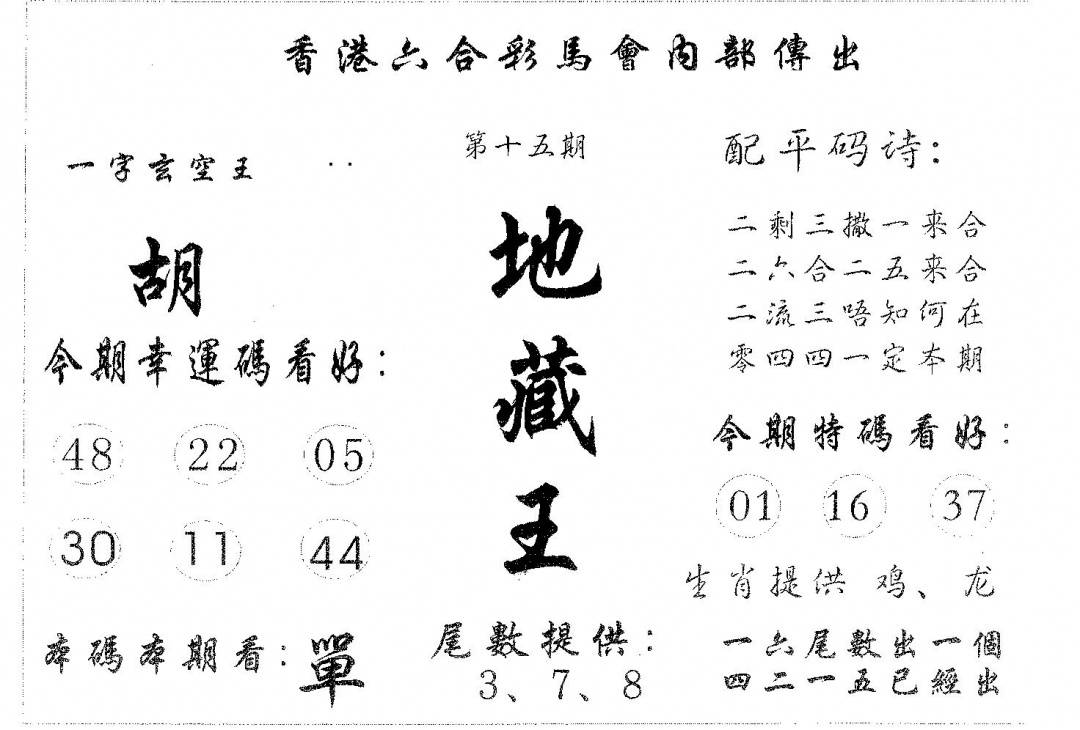 香港六合彩馬會內部傳出
一字玄空王
胡
今期幸運碼看好：
48 22 05
30 11 44
本碼本期看：單
第十五期
地
藏
王
尾數提供：
3、7、8
配平码诗：
二剩三撒一来合
二六合二五来合
二流三唔知何在
零四四一定本期
今期特碼看好：
01 16 37
生肖提供 鸡、龙
一六尾數出一個
四二一五已經出